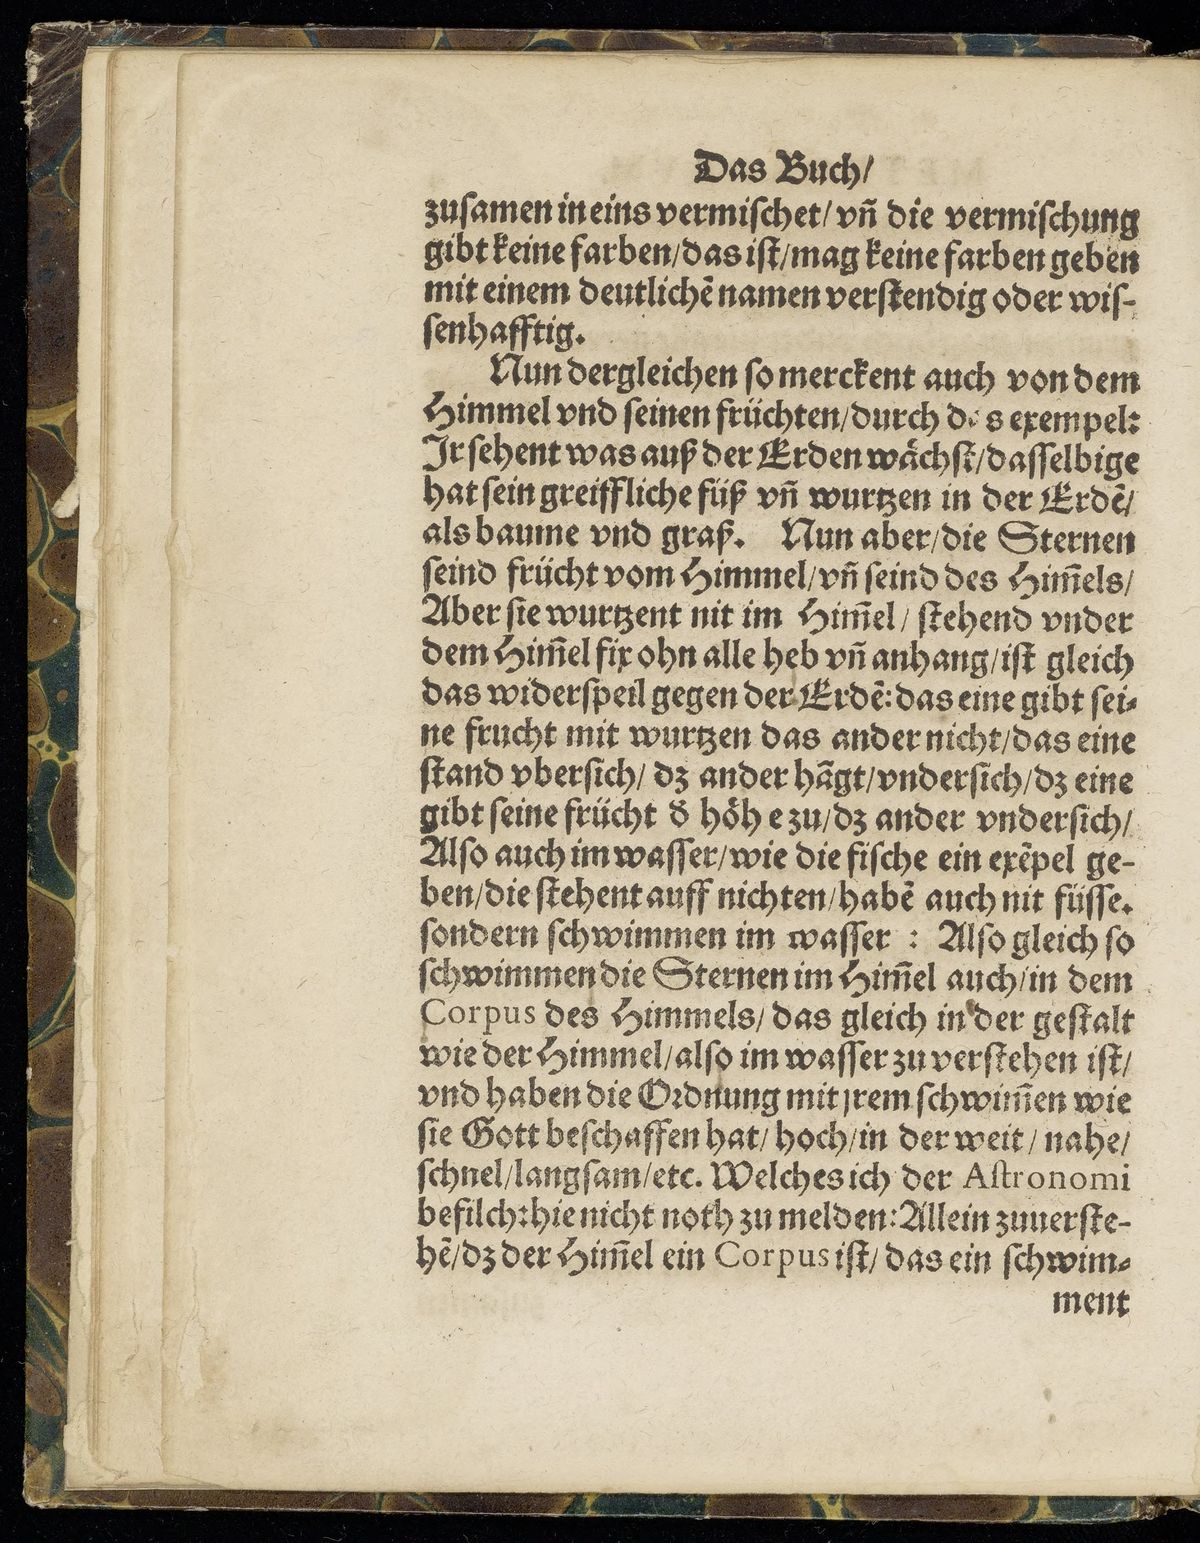 Das Buch/
zusamen in eins vermischet/ vñ die vermischung
gibt keine farben/das ist/mag keine farben geben
mit einem deutlichẽ namen verstendig oder wis-
senhafftig.
Nun dergleichen so merckent auch von dem
Himmel vnd seinen früchten/durch exempel:
Ir sehent was auß der Erden wåchst/dasselbige
hat sein greiffliche füß vñ wurtzen in der Erdẽ/
als baume vnd graß. Nun aber/die Sternen
seind frücht vom Himmel/vñ seind des Him̃els/
Aber sie wurtzent nit im Him̃el/ stehend vnder
dem Him̃el fix ohn alle heb vñ anhang/ist gleich
das widerspeil gegen der Erdẽ: das eine gibt sei-
ne frucht mit wurtzen das ander nicht/das eine
stand vbersich/ dz ander hãgt/vndersich/dz eine
gibt seine frücht d̃ höhe zu/dz ander vndersich/
Also auch im wasser/wie die fische ein exẽpel ge-
ben/die stehent auff nichten/habẽ auch nit füsse.
sondern schwimmen im wasser : Also gleich so
schwimmen die Sternen im Him̃el auch/in dem
Corpus des Himmels/ das gleich in der gestalt
wie der Himmel/also im wasser zu verstehen ist/
vnd haben die Ordnung mit jrem schwim̃en wie
sie Gott beschaffen hat/ hoch/in der weit/ nahe/
schnel/langsam/etc. Welches ich der Astronomi
befilch: hie nicht noth zu melden: Allein zuuerste-
hẽ/dz der Him̃el ein Corpus ist/ das ein schwim-
ment